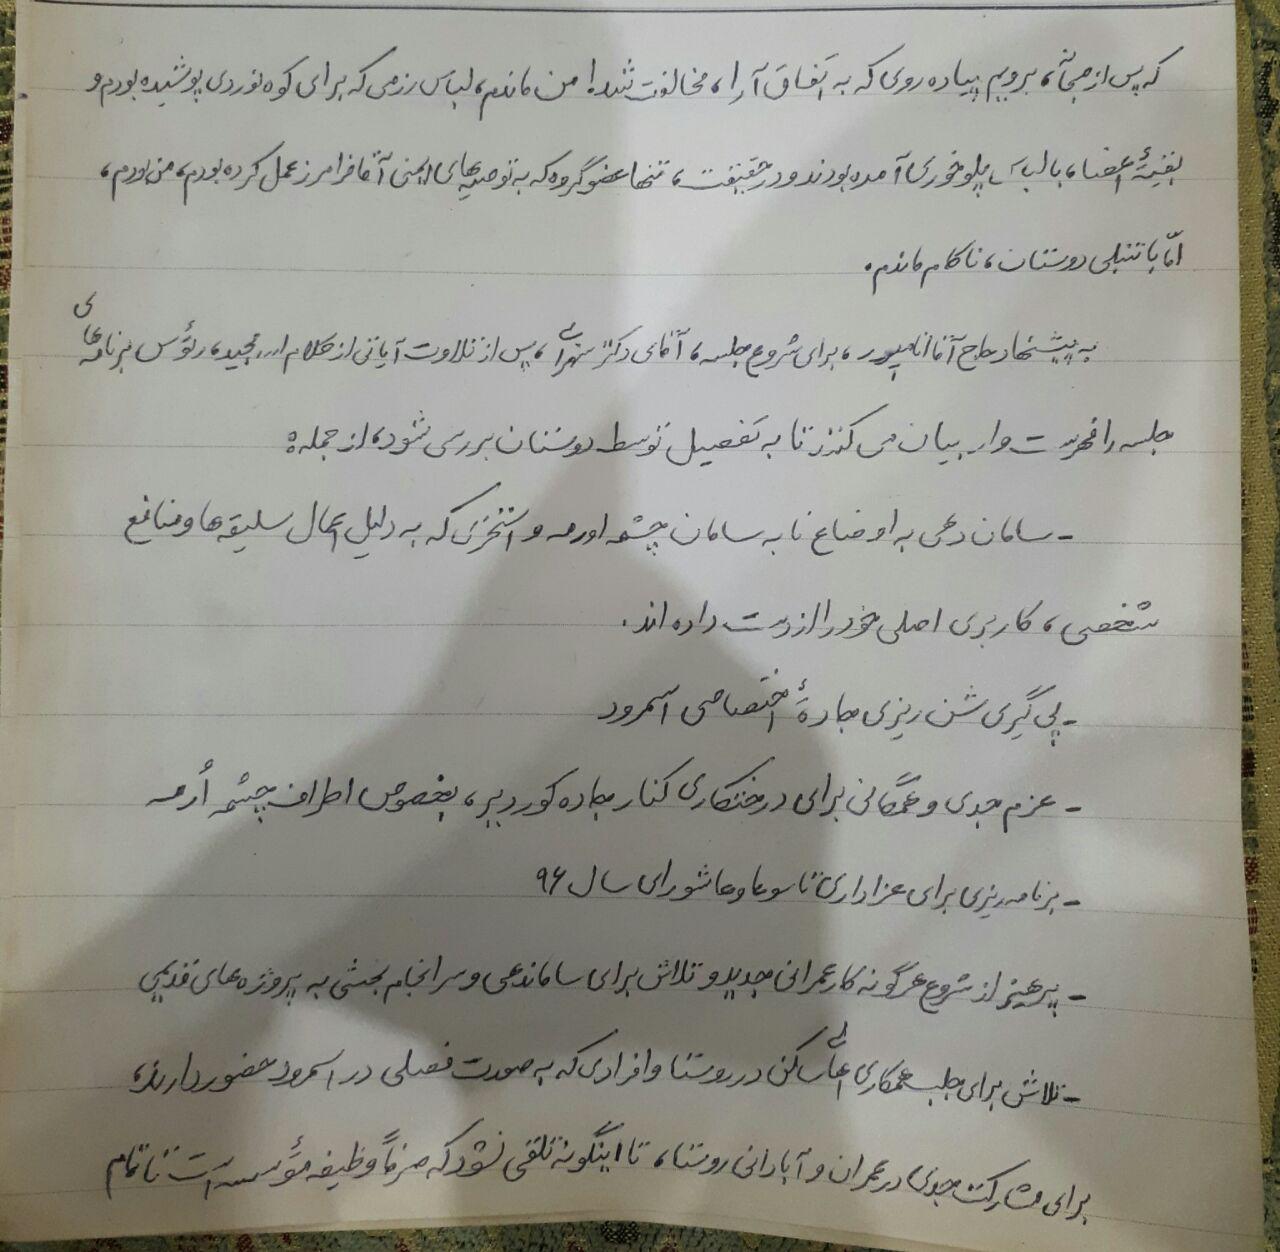 که پس از صبحانه، برویم پیاده روی که به اتفاق آراء، مخالفت شد! من ماندم، لباس رزمی که برای کوه نوردی پوشیده بودم و
بقیهٔ اعضاء، با لباس پلوخوری آمده بودند و در حقیقت، تنها عضو گروه که به توصیه‌های ایمنی آقا فرامرز عمل کرده بودم، من بودم،
امّا با تنبلی دوستان، ناکام ماندم.
به پیشنهاد حاج آقا، برای شروع جلسه، آقای دکتر، پس از تلاوت آیاتی از کلام ا... مجید، رئوس برنامه‌های
جلسه را فهرست وار بیان می کنند تا به تفصیل توسط دوستان بررسی شود، از جمله:
- سامان دهی به اوضاع نا به سامان چشمه اورمه و استخری که به دلیل اعمال سلیقه ها و منافع
شخصی، کاربری اصلی خود را از دست داده اند.
- پی گیری شن ریزی جادهٔ اختصاصی اسمرود
- عزم جدی و همگانی برای درختکاری کنار جاده، بخصوص اطراف چشمه اُرمه
- برنامه ریزی برای عزاداری تاسوعا و عاشورای سال ۹۶
- پرهیز از شروع هرگونه کار عمرانی جدید و تلاش برای ساماندهی و سرانجام بخشی به پروژه های قدیمی
- تلاش برای جلب همکاری اهالی ساکن در روستا و افرادی که به صورت فصلی در اسمرود حضور دارند،
برای مشارکت جدی در عمران و آبادانی روستا، تا اینگونه تلقی نشود که صرفاً وظیفه مؤسسه است تا تمام